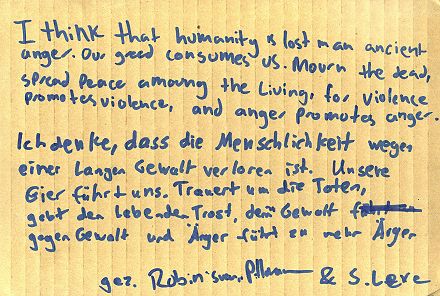 I think that humanity is lost in an ancient
anger. Our greed consumes us. Mourn the dead,
spread peace amoung the Living, for violence
promotes violence, and anger promotes anger.
Ich denke, dass die Menschlichkeit wegen
einer langen Gewalt verloren ist. Unsere
Gier führt uns. Trauert um die Toten,
gebt den Lebenden Trost, denn Gewalt
gegen Gewalt und Ärger führt zu mehr Ärger
gez. & S.